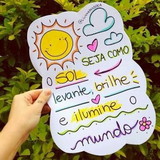 SEJA COMO
SOL
levante, brilhe
e ilumine
mundo